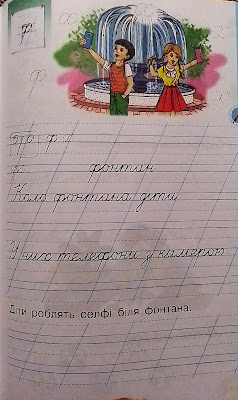 ф
ф
фонтан
Коло фонтана діти
У них телефони з камерою
Діти роблять селфі біля фонтана.